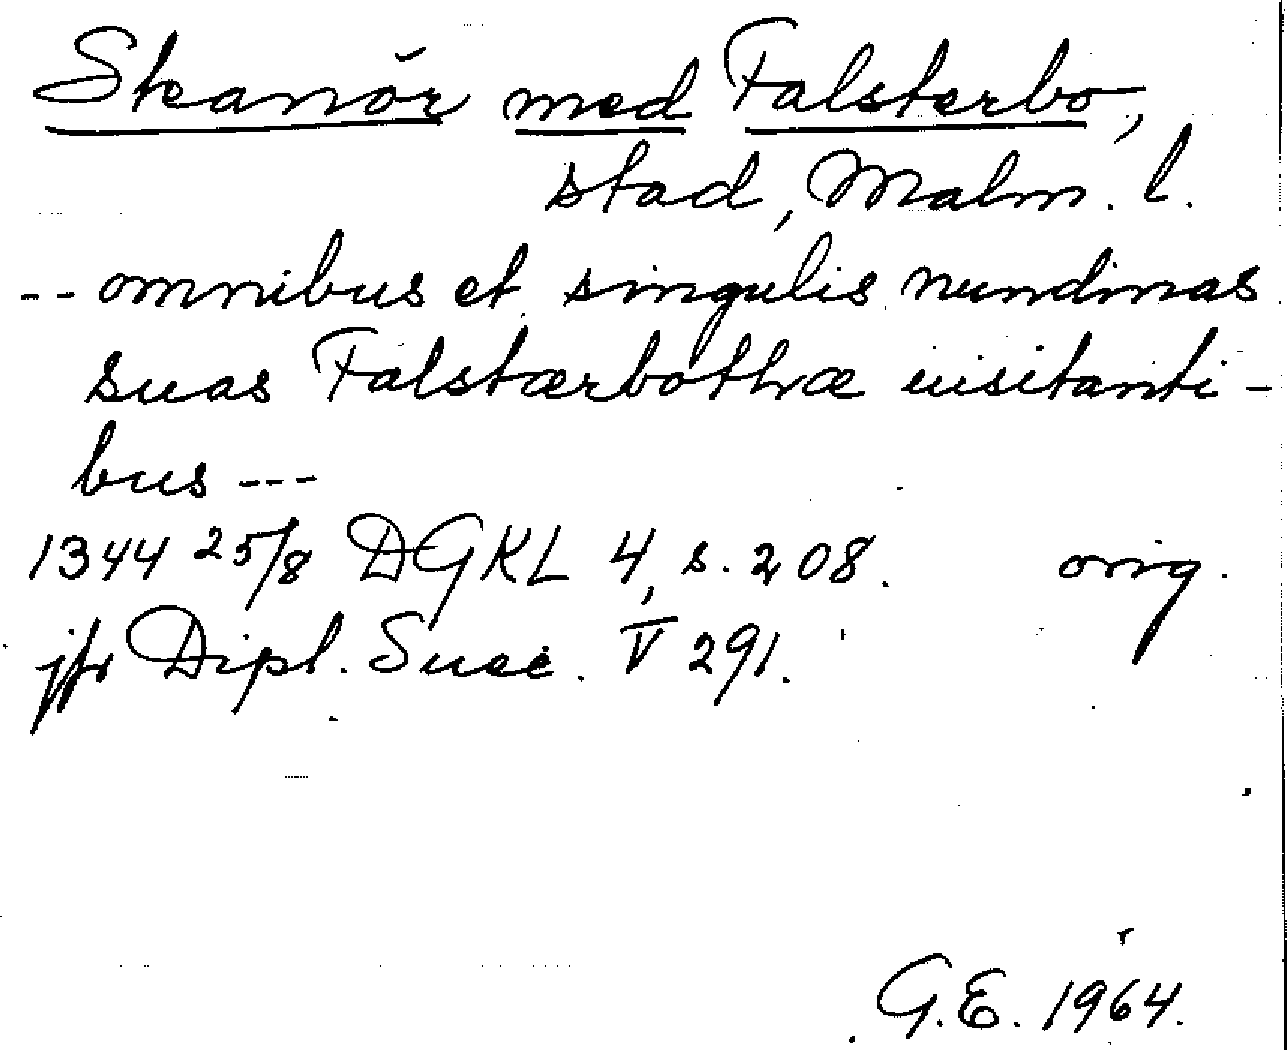 Skanör med Falsterbo,
stad, Malm. l.
-- omnibus et singulis nundinas
suas Falstærbothæ uisitanti-
bus ---
1344 25/8 DGKL 4, s. 208. orig.
jfr Dipl. Suec. V 291.
G.E. 1964.